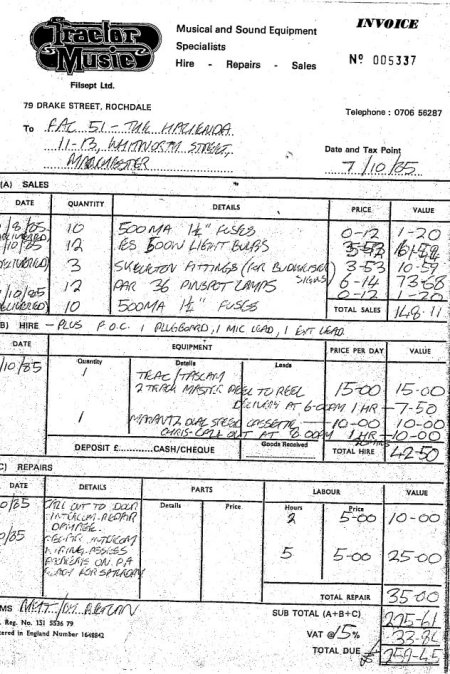 Tractor Music
Filsept Ltd.
Musical and Sound Equipment
Specialists
Hire - Repairs - Sales
INVOICE
Nº 005337
79 DRAKE STREET, ROCHDALE
Telephone : 0706 55287
To FAC 51 - THE HACIENDA
11-13, WHITWORTH STREET,
MANCHESTER
Date and Tax Point
7/10/85
(A) SALES
DATE QUANTITY DETAILS PRICE VALUE
/8/85 10 500MA 1¼" FUSES 0-12 1-20
/10/85 12 ES 500W LIGHT BULBS
3 SKELETON FITTINGS (FOR BUDWEISER SIGNS) 3-53 10-59
12 PAR 36 PINSPOT LAMPS 6-14 73-68
/10/85 10 500MA 1¼" FUSES 0-12 1-20
TOTAL SALES 148-11
B) HIRE - PLUS F.O.C. 1 PLUGBOARD, 1 MIC LEAD, 1 EXT LEAD
DATE EQUIPMENT PRICE PER DAY VALUE
Quantity Details Leads
/10/85 1 TEAC/TASCAM
2 TRACK MASTER REEL TO REEL 15-00 15-00
DELIVERY AT 6-00PM 1 HR - 7-50
1 MARANTZ DUAL SPEED CASSETTE 10-00 10-00
CHRIS-CALL OUT AT 8.00PM 1 HR - 10-00
DEPOSIT £ CASH/CHEQUE Goods Received TOTAL HIRE 42-50
C) REPAIRS
DATE DETAILS PARTS LABOUR VALUE
Details Price Hours Price
0/85 CALL OUT TO DOOR 2 5-00 10-00
INTERCOM REPAIR
DAMAGE
0/85 INTERCOM 5 5-00 25-00
ON PA
READY FOR SATURDAY
TOTAL REPAIR 35-00
MS NETT/ RETURN
. Reg. No. 151 5536 79
tered in England Number 1648842
SUB TOTAL (A+B+C) 225-61
VAT @ 15% 33-84
TOTAL DUE £ 259-45